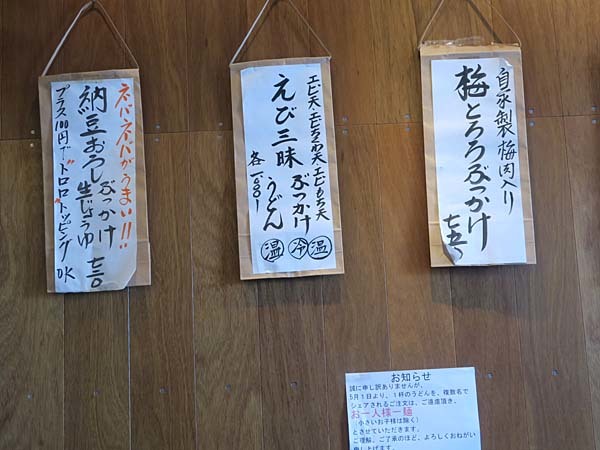 自家製梅肉入り
梅とろろぶっかけ
七五〇
エビ天 エビちくわ天 エビもち天
えび三昧
ぶっかけ
うどん
各一、〇〇〇
温 冷 温
ネバネバがうまい!!
納豆おろし
ぶっかけ
生じょうゆ
七三〇
プラス100円で"トロロ"トッピングOK
お知らせ
誠に申し訳ありませんが、
5月1日より、1杯のうどんを、複数名で
シェアされるご注文は、ご遠慮頂き、
お一人様一麺
(小さいお子様は除く)
とさせていただきます。
ご理解、ご了承のほど、よろしくおねがい
申し上げます。